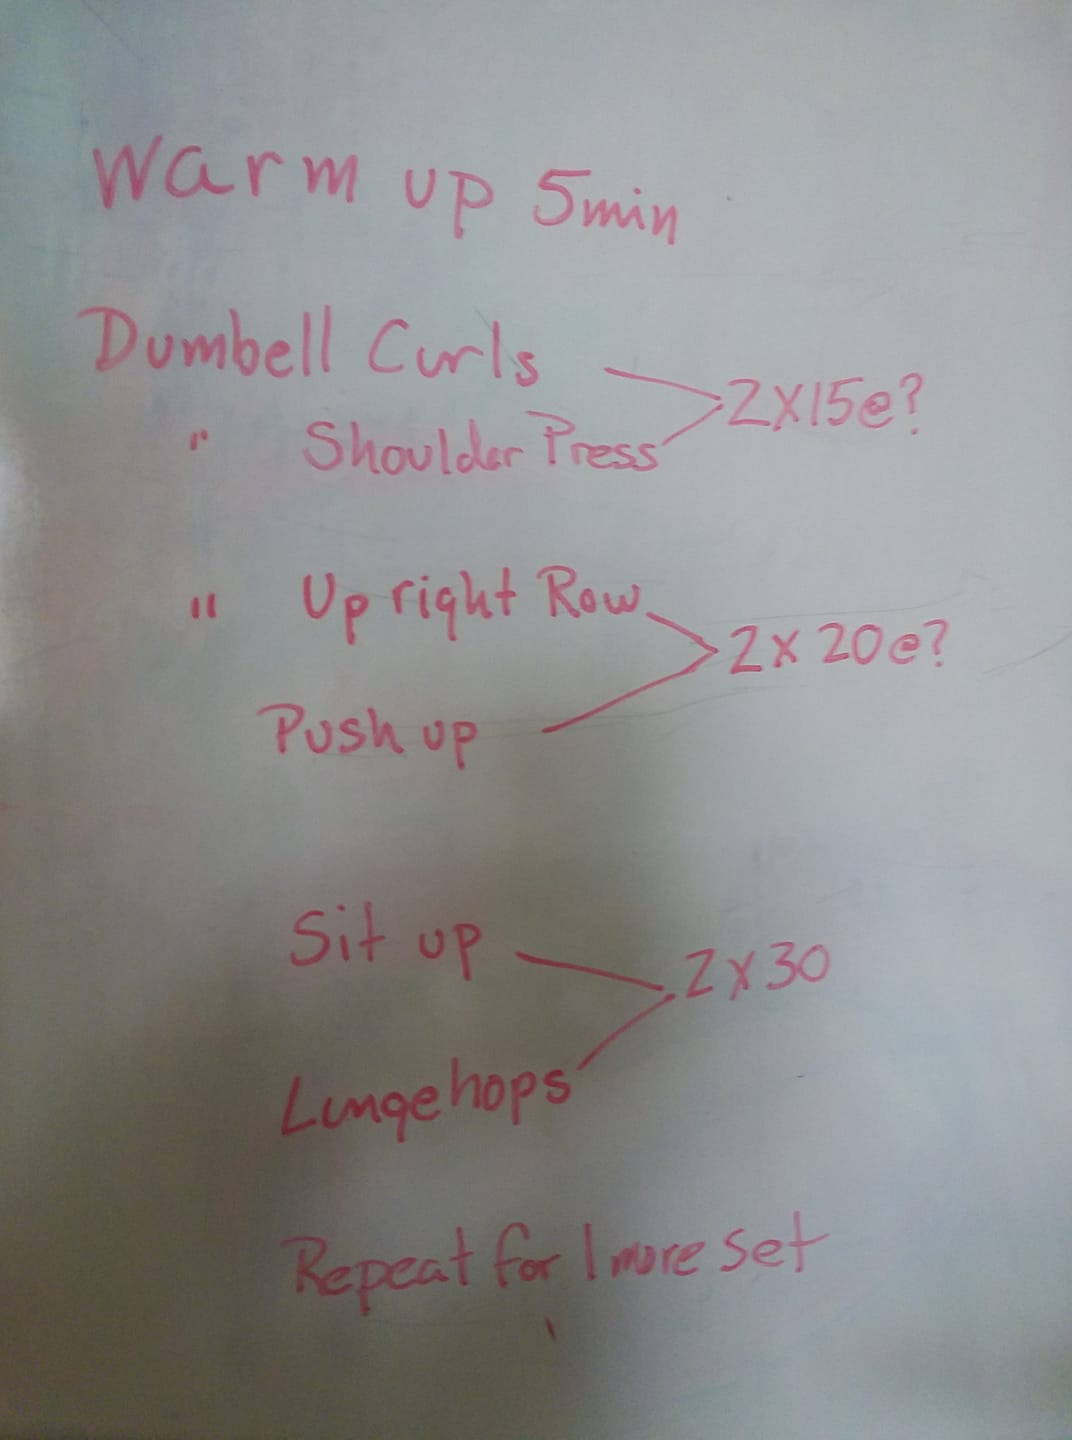 Warm up 5min
Dumbell Curls
" Shoulder Press
2X15e?
" Up right Row
Push up
2x20e?
Sit up
Lunge hops
2x30
Repeat for 1 more set